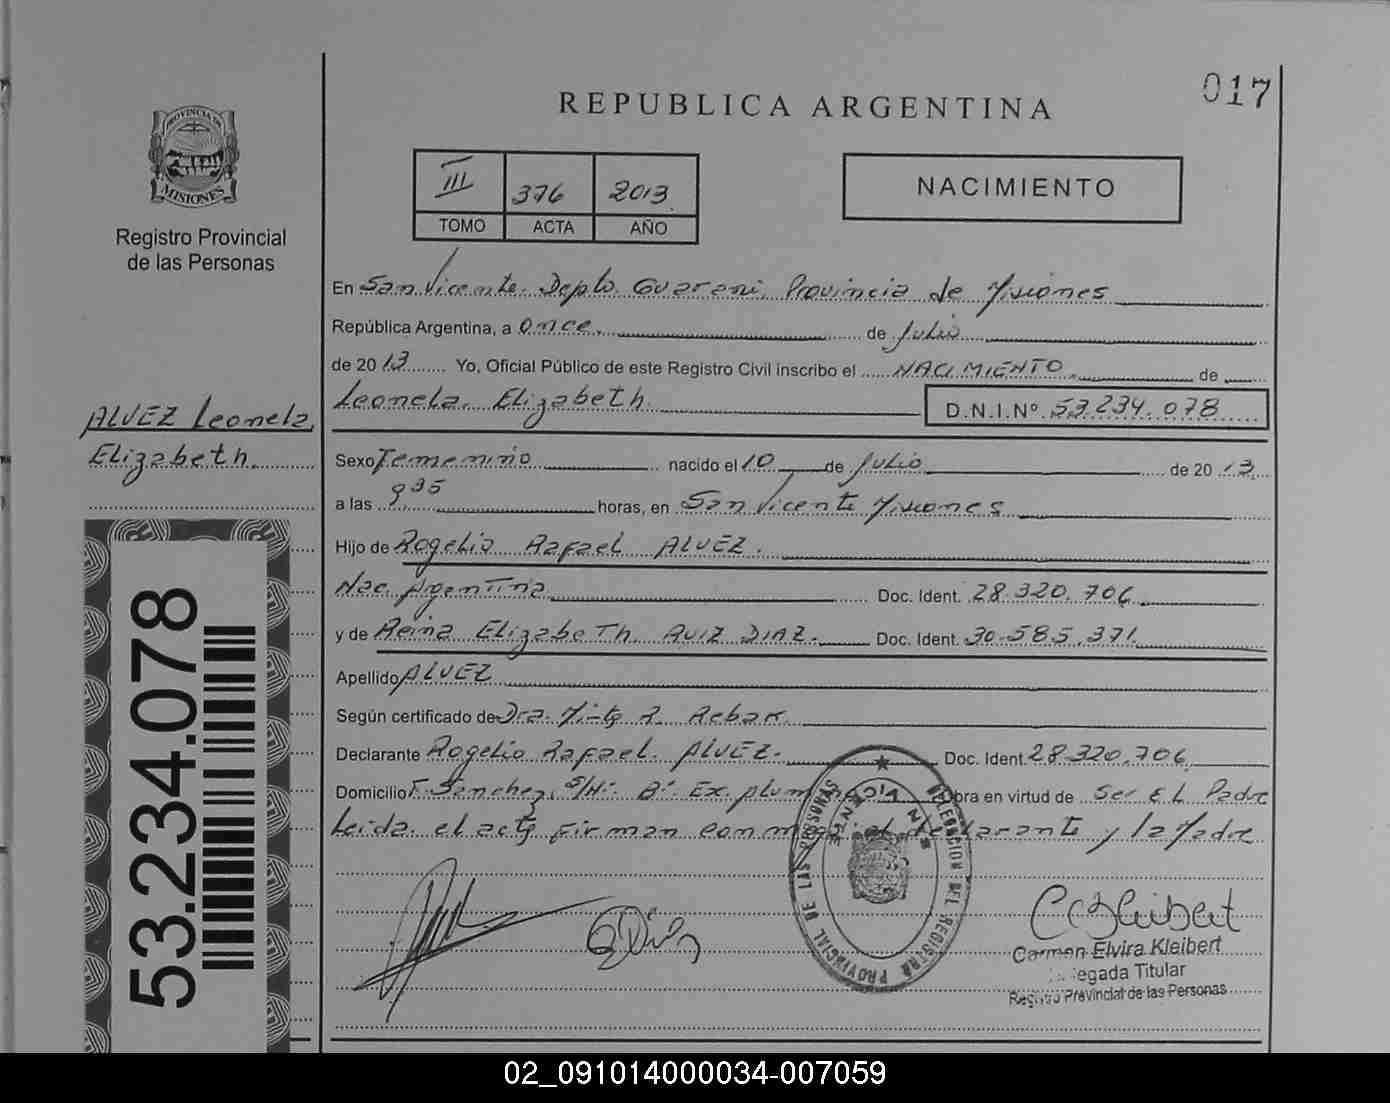 017
REPUBLICA ARGENTINA
PROVINCIA DE
MISIONES
Registro Provincial
de las Personas
III 376 2013
TOMO ACTA AÑO
NACIMIENTO
En San Vicente. Depto. Guarani. Provincia de Misiones
República Argentina, a once. de Julio
de 2013 Yo, Oficial Público de este Registro Civil inscribo el NACIMIENTO de
Leonela. Elizabeth. D.N.I.Nº 53.234.078
ALVEZ Leonela
Elizabeth.
Sexo Femenino nacido el 10 de Julio de 2013
a las 9,35 horas, en San Vicente Misiones
Hijo de Rogelio Rafael ALVEZ.
Nac. Argentina Doc. Ident. 28.320.706
y de Reina Elizabeth. RUIZ DIAZ. Doc. Ident. 30.585.371
Apellido ALVEZ
Según certificado de Dra. R. Rebak
Declarante Rogelio Rafael. ALVEZ. Doc. Ident. 28.320.706
Domicilio F. Sanchez. S/Nº. Bº. Ex. Obra en virtud de Ser EL Padre
Leida. el acta firman el declarante y la Madre
53.234.078
SAN VICENTE
DELEGACION DEL REGISTRO PROVINCIAL DE LAS PERSONAS
Carmen Elvira Kleibert
Delegada Titular
Registro Provincial de las Personas
02_091014000034-007059